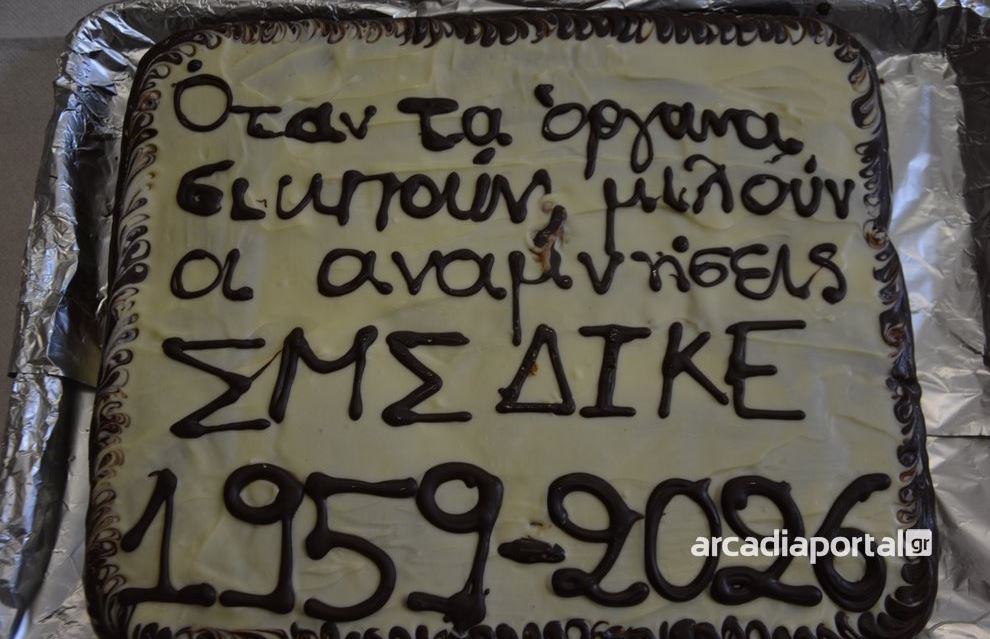 Όταν τα όργανα
σιωπούν, μιλούν
οι αναμνήσεις
ΣΜΣ ΔΙΚΕ
1959-2026
arcadiaportal.gr